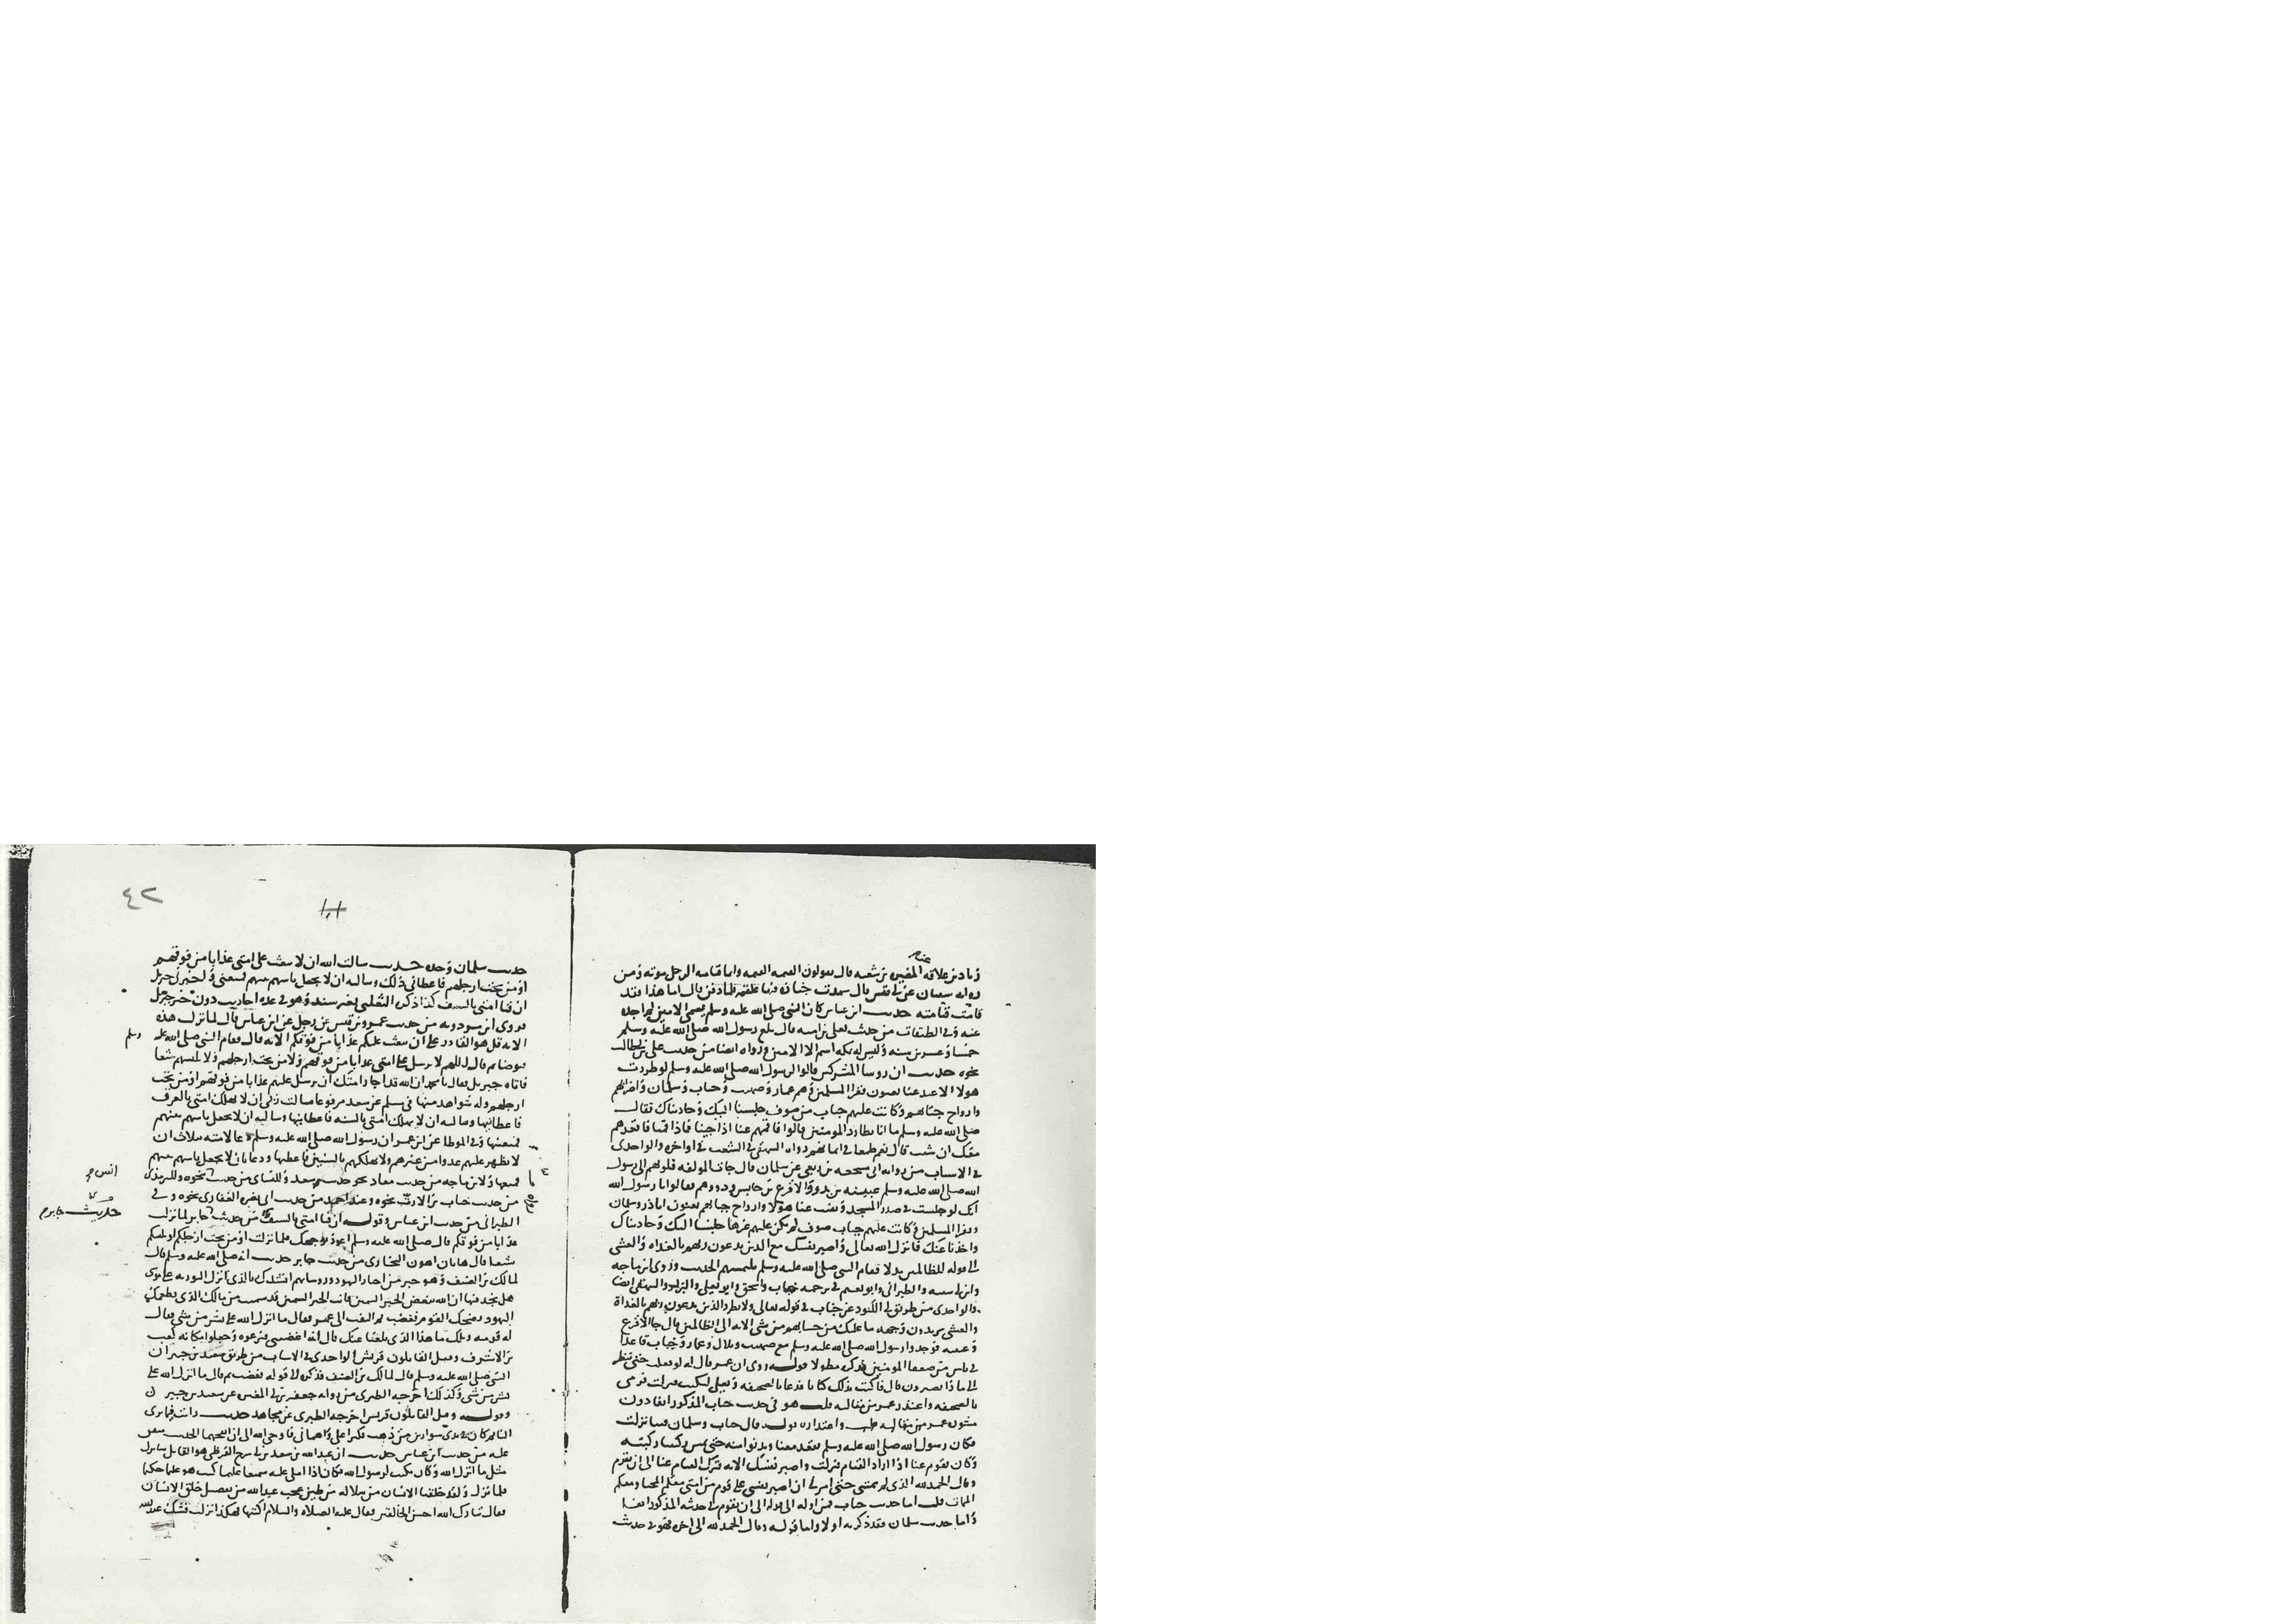 زياد بن علاقه المغيره بن شعبه قال يقولون القيمه القيمه وانما قيامه الرجل موته ومن
روايه سفيان عن ابي قيس قال شهدت جنازه فيها علقمه فلما دفن قال اما هذا فقد
قامت قيامته حديث ابن عباس كان النبي صلى الله عليه وسلم يسمى الامين لم اجده
عنه وفي الطبقات من حديث يعلى بن اميه قال بلغ رسول الله صلى الله عليه وسلم
خمسا وعشرين سنه وليس له بمكه اسم الا الامين ورواه ايضا من حديث علي بن ابي طالب
نحوه حديث ان روسا المشركين قالوا لرسول الله صلى الله عليه وسلم لو طردت
هولا الاعبد عنا يعنون فقرا المسلمين وهم عمار وصهيب وخباب وسلمان واضرابهم
وارواح جبابهم وكانت عليهم جباب من صوف جلسنا اليك وحادثناك فقال
صلى الله عليه وسلم ما انا بطارد المومنين قالوا فاقمهم عنا اذا جينا فاذا قمنا فاقعدهم
معك ان شيت قال نعم طمعا في ايمانهم رواه البيهقي في الشعب في اواخره والواحدي
في الاسباب من روايه ابي مشجعه بن ربعي عن سلمان قال جات المولفه قلوبهم الى رسول
الله صلى الله عليه وسلم عيينه بن بدر والاقرع بن حابس وذووهم فقالوا يا رسول الله
انك لو جلست في صدر المسجد ونفيت عنا هولا وارواح جبابهم يعنون اباذر وسلمان
وفقرا المسلمين وكانت عليهم جباب صوف لم يكن عليهم غيرها جلسنا اليك وحادثناك
واخذنا عنك فانزل الله تعالى واصبر نفسك مع الذين يدعون ربهم بالغداه والعشي
الى قوله للظالمين بدلا فقام النبي صلى الله عليه وسلم يلتمسهم الحديث وروى ابن ماجه
وابن ابي شيبه والطبراني وابو نعيم في ترجمه خباب واسحق وابو يعلى والبزار والبيهقي ايضا
والواحدي من طريق ابي الكنود عن خباب في قوله تعالى ولا تطرد الذين يدعون ربهم بالغداة
والعشي يريدون وجهه ما عليك من حسابهم من شي الايه الى الظالمين قال جا الاقرع
وعيينه فوجدوا رسول الله صلى الله عليه وسلم مع صهيب وبلال وعمار وخباب قاعدا
في ناس من ضعفا المومنين فذكره مطولا قوله روي ان عمر قال له لو فعلت حتى ننظر
الى ماذا يصيرون قال فاكتب بذلك كتابا فدعا بالصحيفه وبعلي ليكتب فنزلت فرمى
بالصحيفه واعتذر عمر من مقالته قلت هو في حديث خباب المذكور انفا دون
قول عمر من مقالته واعتذاره قوله قال خباب وسلمان فينا نزلت
فكان رسول الله صلى الله عليه وسلم يقعد معنا ويدنوا منه حتى تمس ركبنا ركبته
وكان يقوم عنا اذا اراد القيام فنزلت واصبر نفسك الايه فترك القيام عنا الى ان نقوم
وقال الحمد لله الذي لم يمتني حتى امرني ان اصبر نفسي على قوم من امتي معكم المحيا ومعكم
الممات قلت اما حديث خباب فمن اوله الى قوله الى ان يقوم في حديثه المذكور ايضا
واما حديث سلمان فقد ذكرته اولا واما قوله وقال الحمد لله الى اخره فهو في حديث
٤٢
حديث سلمان وحده حديث سالت الله ان لا يبعث على امتي عذابا من فوقهم
او من تحت ارجلهم فاعطاني ذلك وسالته ان لا يجعل باسهم بينهم فمنعني واخبرني جبريل
ان فنا امتي بالسيف كذا ذكره الثعلبي بغير سند وهو في عده احاديث دون خبر جبريل
فروى ابن مردويه من حديث عمرو بن قيس عن رجل عن ابن عباس قال لما نزلت هذه
الايه قل هو القادر على ان يبعث عليكم عذابا من فوقكم الايه قال فقام النبي صلى الله عليه وسلم
فتوضا ثم قال اللهم لا ترسل على امتي عذابا من فوقهم ولا من تحت ارجلهم ولا تلبسهم شيعا
فاتاه جبريل فقال يا محمد ان الله قد اجار امتك ان يرسل عليهم عذابا من فوقهم او من تحت
ارجلهم وله شواهد منها في مسلم عن سعد مرفوعا سالت ربي ان لا يهلك امتي بالغرق
فاعطانيها وسالته ان لا يهلك امتي بالسنه فاعطانيها وسالته ان لا يجعل باسهم بينهم
فمنعنيها وفي الموطا عن ابن عمر ان رسول الله صلى الله عليه وسلم دعا لامته بثلاث ان
لا يظهر عليهم عدوا من غيرهم ولا يهلكهم بالسنين فاعطيها ودعا بان لا يجعل باسهم بينهم
فمنعها ولابن ماجه من حديث معاذ نحو حديث سعد وللنساي من حديث نحوه وللترمذي
انس
من حديث خباب بن الارت نحوه وعند احمد من حديث ابي بصره الغفاري نحوه وفي
الطبراني من حديث ابن عباس وقوله ان فنا امتي بالسيف من حديث جابر لما نزلت
حديث جابر
عذابا من فوقكم قال صلى الله عليه وسلم اعوذ بوجهك فلما نزلت او من تحت ارجلكم او يلبسكم
شيعا قال هاتان اهون البخاري من حديث جابر حديث انه صلى الله عليه وسلم قال
لمالك بن الصيف وهو حبر من احبار اليهود وروسايهم انشدك بالذي انزل التوريه على موسى
هل تجد فيها ان الله يبغض الحبر السمين فانت الحبر السمين قد سمنت من مالك الذي يطعمك
اليهود فضحك القوم فغضب ثم التفت الى عمر فقال ما انزل الله على بشر من شي فقال
له قومه ويلك ما هذا الذي بلغنا عنك قال انه اغضبني فنزعوه وجعلوا مكانه كعب
بن الاشرف وقيل القايلون قريش الواحدي في الاسباب من طريق سعيد بن جبير ان
النبي صلى الله عليه وسلم قال لمالك بن الصيف فذكره الى قوله فغضب ثم قال ما انزل الله على
بشر من شي وكذلك اخرجه الطبري من روايه جعفر بن ابي المغيره عن سعيد بن جبير
وقوله وقيل القايلون قريش اخرجه الطبري عن مجاهد حديث رايت فيما يرى
النايم كان في يدي سوارين من ذهب فكبرا علي واهماني فاوحى الله الي ان انفخهما الحديث متفق
عليه من حديث ابن عباس حديث ان عبدالله بن سعد بن ابي سرح القرشي هو القايل سانزل
مثل ما انزل الله وكان يكتب لرسول الله فكان اذا املى عليه سميعا عليما كتب هو عليما حكيما
فلما نزلت ولقد خلقنا الانسان من سلاله من طين عجب عبد الله من تفصيل خلق الانسان
فقال تبارك الله احسن الخالقين فقال عليه الصلاه والسلام اكتبها فهكذا نزلت فشك عبدالله